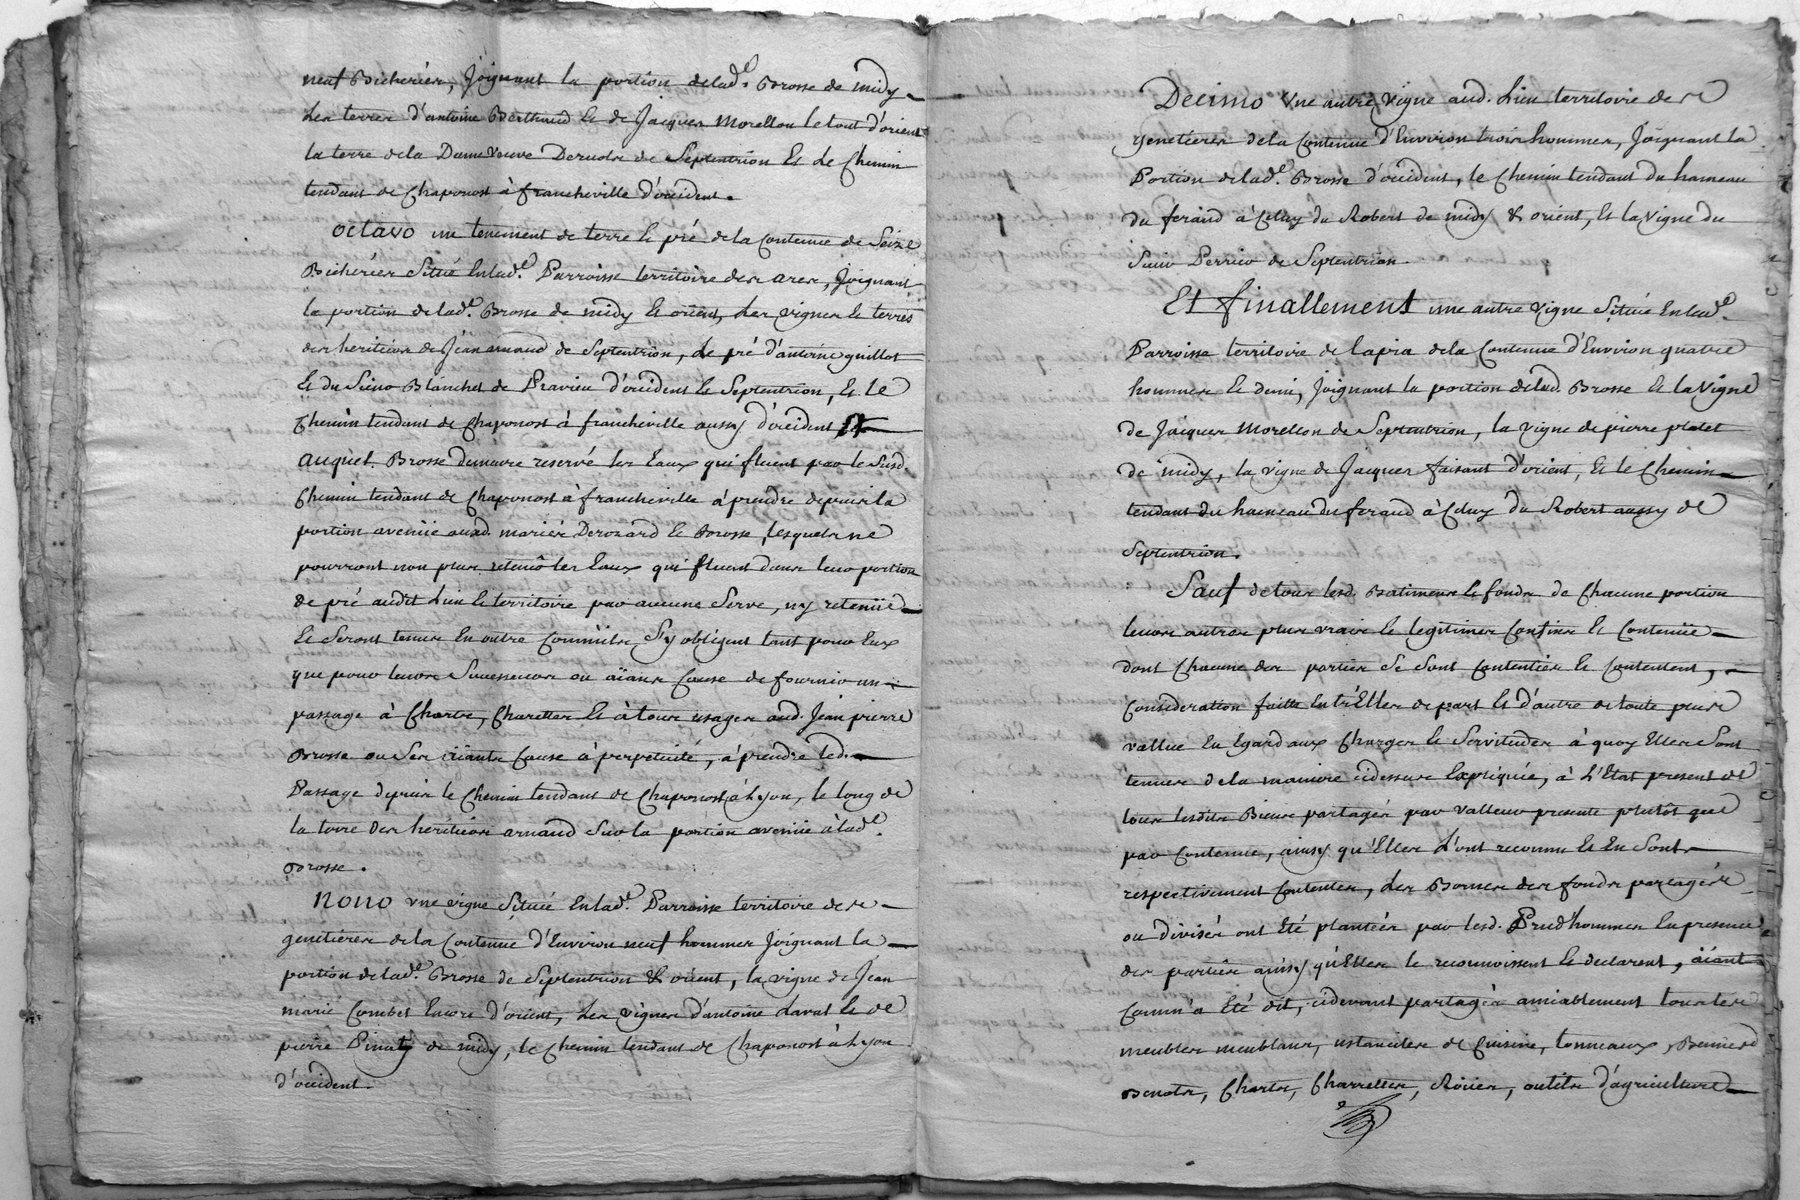 neuf Bicherées, Joignant la portion de lad.e Brosse de midy
Les terres d'antoine Berthaud & de Jacques Morellon le tout d'orient
la terre de la Dame veuve Deruolz de Septentrion Et Le Chemin
tendant de Chaponost à francheville d'occident.
Octavo un tenement de terre & pré de la Contenue de Seize
Bicherées Situé En lad.e Parroisse territoire des ares, Joignant
la portion de lad.e Brosse de midy & orient, Les vignes & terres
des heritiers de Jean arnaud de Septentrion, Le pré d'antoine guillot
& du Seino Blanchet de Pravieu d'occident & Septentrion, & Le
Chemin tendant de Chaponost à francheville aussy d'occident
auquel. Brosse demeure reservé les Eaux qui fluent par le Susd.
Chemin tendant de Chaponost à francheville à prendre depuis la
portion avenüe auxd. mariés Derozard & Brosse, lesquels ne
pourront non plus retenir les Eaux qui fluent dans leur portion
de pré audit Lieu & territoire par aucune Serve, ny retenüe
Et Seront tenus En outre Comm'ils S'y obligent tant pour Eux
que pour leurs Successeurs ou aïants Cause de fournir un
passage à Chars, Charettes & à tous usages aud. Jean pierre
Brosse ou Ses aïants Cause à perpetuité, à prendre led.
Passage depuis le Chemin tendant de Chaponost à Lyon, le long de
la terre des heritiers arnaud Sur la portion avenüe à lad.e
Brosse.
Nono Une vigne Située En lad.e Parroisse territoire des
genetieres de la Contenue d'Environ neuf hommes Joignant la
portion de lad.e Brosse de Septentrion & orient, la vigne de Jean
marie Combet Encore d'orient, Les vignes d'antoine Laval & de
pierre Pinay de midy, le Chemin tendant de Chaponost à Lyon
d'occident.
Decimo Une autre vigne aud. Lieu territoire des
genetieres de la Contenue d'Environ trois hommes, Joignant la
Portion de lad.e Brosse d'occident, le Chemin tendant du hameau
du feraud à Celuy du Robert de midy & orient, Et la vigne du
Perrico de Septentrion.
Et finallement une autre vigne Située En lad.e
Parroisse territoire de lapra de la Contenue d'Environ quatre
hommes & demi, Joignant la portion de lad. Brosse & la vigne
de Jacques Morellon de Septentrion, la vigne de pierre platet
de midy, la vigne de Jacques faisant d'orient, Et le Chemin
tendant du hameau du feraud à Celuy du Robert aussy de
Septentrion.
Sauf de tous lesd. Batiments & fonds de Chacune portion
leurs autres plus vrais & legitimes Confins & Contenüe
dont Chacune des parties Se Sont Contentées & Contentent,
Consideration faitte Entr'Elles de part Et d'autre de toute plus
vallue Eu Egard aux Charges & Servitudes à quoy Elles Sont
tenues de la maniere cidessus Expliquée, à L'Etat present de
tous lesdits Biens partagés par valleur presente plutôt que
par Contenue, ainsy qu'Elles L'ont reconnu Et En Sont
respectivement Contentes, Les Bornes des fonds partagés
ou divisés ont Eté plantées par lesd. Prud'hommes En presence
des parties ainsy qu'Elles le reconnoissent & declarent, aïant
Comm'a Eté dit, cidevant partagés amiablement tous les
meubles meublants, ustanciles de Cuisine, tonneaux, Bennes
Benots, Chars, Charrettes, Rôües, outils d'agriculture